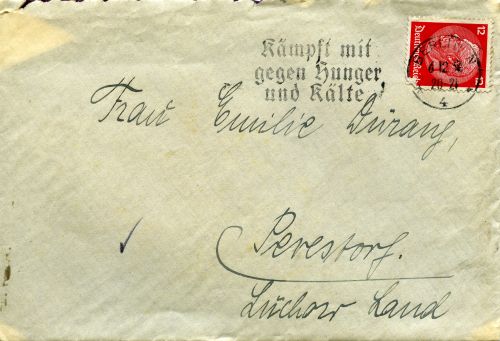 Kämpft mit
gegen Hunger
und Kälte
12
12
Deutsches Reich
6.12.
20-21
4
Frau Emilie Dürang,
Pevestorf.
Lüchow Land